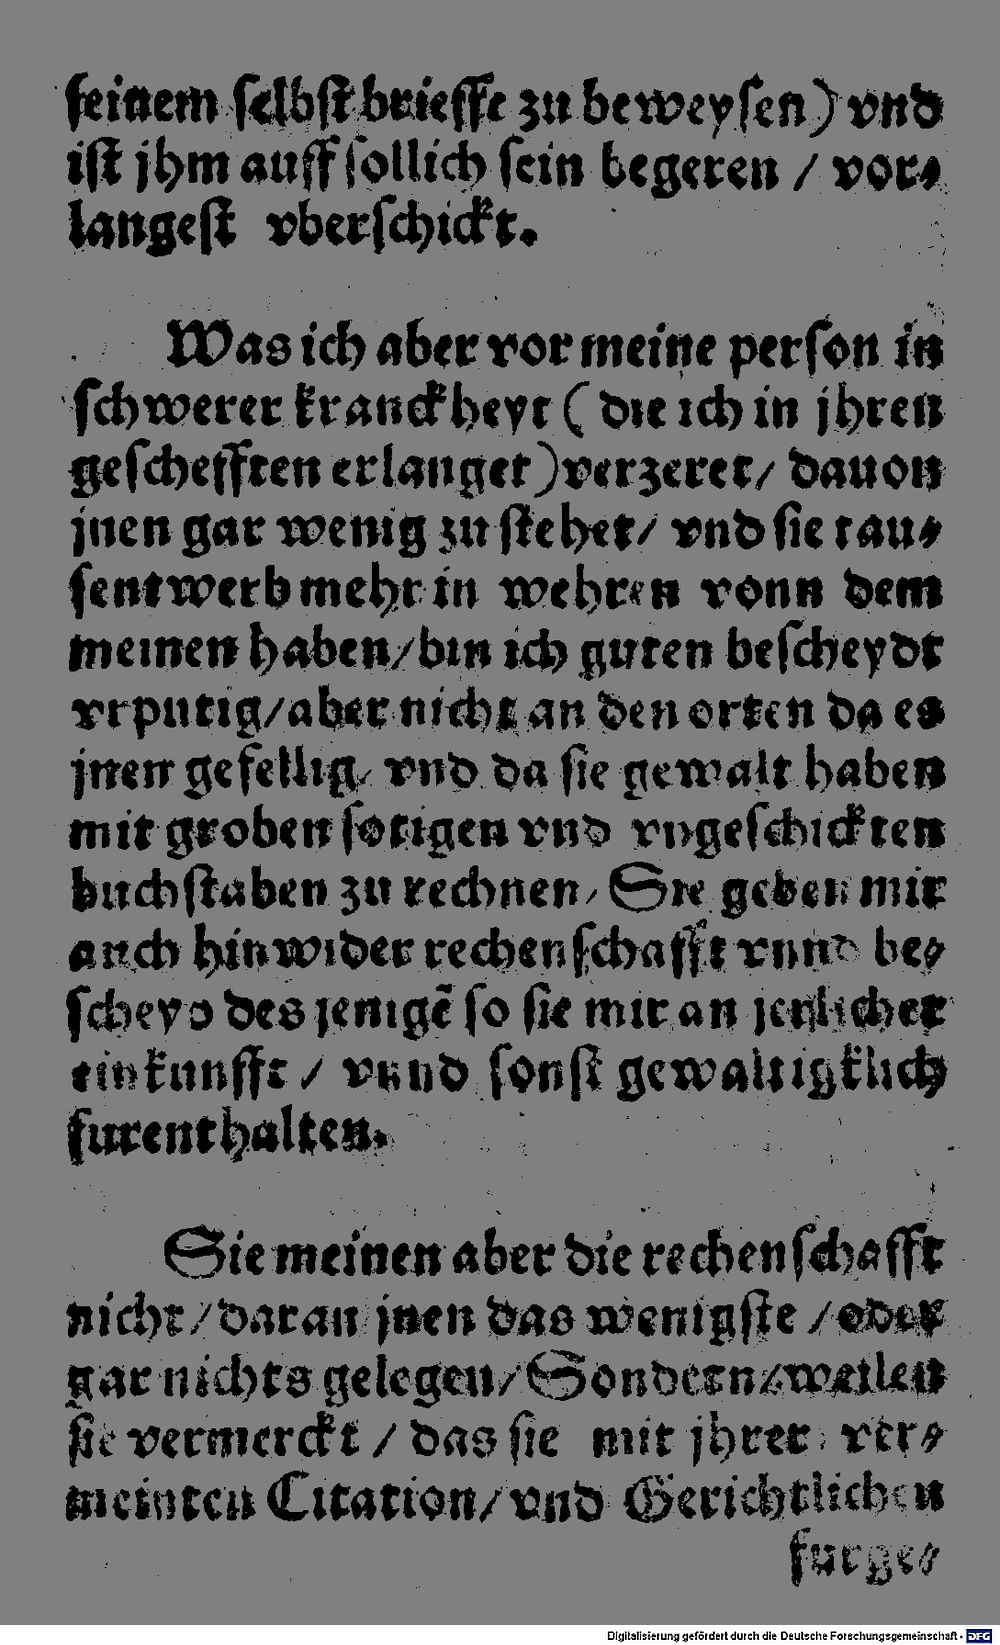 seinem selbst brieffe zu beweysen) vnd
ist jhm auff sollich sein begeren / vor⸗
langest vberschickt.
Was ich aber vor meine person in
schwerer kranckheyt (die ich in jhren
geschefften erlanget) verzeret / dauon
jnen gar wenig zu stehet / vnd sie tau⸗
sentwerb mehr in wehren vonn dem
meinen haben / bin ich guten bescheydt
vrputig / aber nicht an den orten da es
jnen gefellig / vnd da sie gewalt haben
mit groben sotigen vnd vngeschickten
buchstaben zu rechnen / Sie geben mir
auch hinwider rechenschafft vnnd be⸗
scheyd des jenigē so sie mir an jerlicher
einkunfft / vnnd sonst gewaltigklich
furenthalten.
Sie meinen aber die rechenschafft
nicht / daran jnen das wenigste / oder
gar nichts gelegen / Sondern / weilen
sie vermerckt / das sie mit jhrer ver⸗
meinten Citation / vnd Gerichtlichen
furge⸗
Digitalisierung gefördert durch die Deutsche Forschungsgemeinschaft - DFG